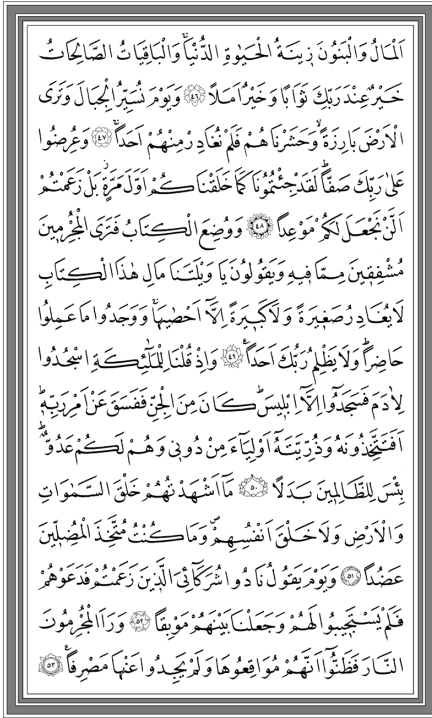 اَلْمَالُ وَالْبَنُونَ زِينَةُ الْحَيٰوةِ الدُّنْيَاۚ وَالْبَاقِيَاتُ الصَّالِحَاتُ
خَيْرٌ عِنْدَ رَبِّكَ ثَوَابًا وَخَيْرٌ اَمَلًا ﴿٤٦﴾ وَيَوْمَ نُسَيِّرُ الْجِبَالَ وَتَرَى
الْاَرْضَ بَارِزَةًۙ وَحَشَرْنَاهُمْ فَلَمْ نُغَادِرْ مِنْهُمْ اَحَدًاۚ ﴿٤٧﴾ وَعُرِضُوا
عَلٰى رَبِّكَ صَفًّاۜ لَقَدْ جِئْتُمُونَا كَمَا خَلَقْنَاكُمْ اَوَّلَ مَرَّةٍۘ بَلْ زَعَمْتُمْ
اَلَّنْ نَجْعَلَ لَكُمْ مَوْعِدًا ﴿٤٨﴾ وَوُضِعَ الْكِتَابُ فَتَرَى الْمُجْرِمِينَ
مُشْفِقِينَ مِمَّا فِيهِ وَيَقُولُونَ يَا وَيْلَتَنَا مَالِ هٰذَا الْكِتَابِ
لَا يُغَادِرُ صَغِيرَةً وَلَا كَبِيرَةً اِلَّٓا اَحْصٰيهَاۚ وَوَجَدُوا مَا عَمِلُوا
حَاضِرًاۜ وَلَا يَظْلِمُ رَبُّكَ اَحَدًا۟ ﴿٤٩﴾ وَاِذْ قُلْنَا لِلْمَلٰٓئِكَةِ اسْجُدُوا
لِاٰدَمَ فَسَجَدُٓوا اِلَّٓا اِبْلِيسَۜ كَانَ مِنَ الْجِنِّ فَفَسَقَ عَنْ اَمْرِ رَبِّهِۜ
اَفَتَتَّخِذُونَهُ وَذُرِّيَّتَهُٓ اَوْلِيَٓاءَ مِنْ دُونِي وَهُمْ لَكُمْ عَدُوٌّۜ
بِئْسَ لِلظَّالِمِينَ بَدَلًا ﴿٥٠﴾ مَٓا اَشْهَدْتُهُمْ خَلْقَ السَّمٰوَاتِ
وَالْاَرْضِ وَلَا خَلْقَ اَنْفُسِهِمْۖ وَمَا كُنْتُ مُتَّخِذَ الْمُضِلِّينَ
عَضُدًا ﴿٥١﴾ وَيَوْمَ يَقُولُ نَادُوا شُرَكَٓائِيَ الَّذِينَ زَعَمْتُمْ فَدَعَوْهُمْ
فَلَمْ يَسْتَجِيبُوا لَهُمْ وَجَعَلْنَا بَيْنَهُمْ مَوْبِقًا ﴿٥٢﴾ وَرَاَ الْمُجْرِمُونَ
النَّارَ فَظَنُّٓوا اَنَّهُمْ مُوَاقِعُوهَا وَلَمْ يَجِدُوا عَنْهَا مَصْرِفًا۟ ﴿٥٣﴾